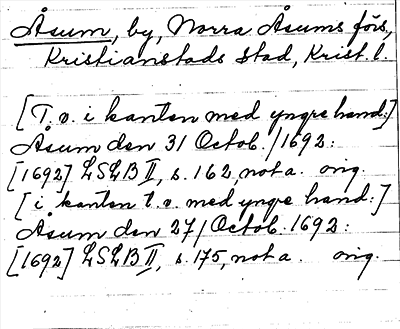 Åsum, by, Norra Åsums förs.,
Kristianstads stad, Krist. l.
[T.v. i kanten med yngre hand:]
Åsum den 31 Octob. / 1692:
[1692] LSLB II, s. 162, not a. orig.
[i kanten t.v. med yngre hand:]
Åsum den 27/ Octob. 1692:
[1692] LSLB II, s. 175, not a. orig.